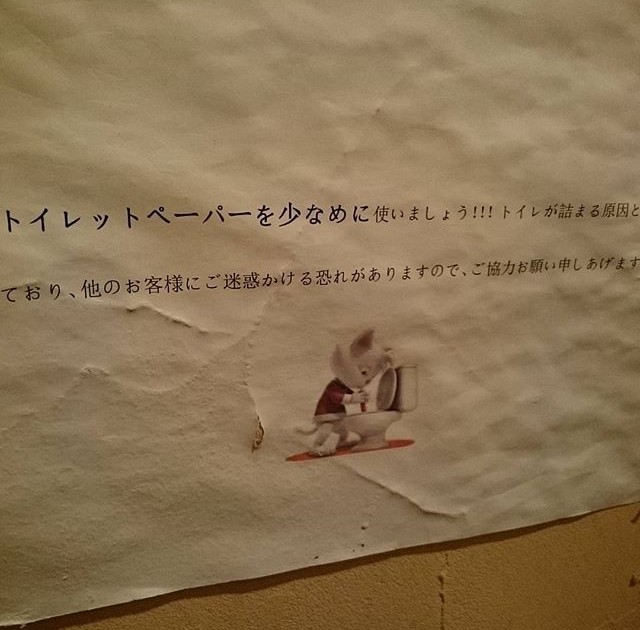 トイレットペーパーを少なめに使いましょう!!! トイレが詰まる原因と
ており、他のお客様にご迷惑かける恐れがありますので、ご協力お願い申しあげます